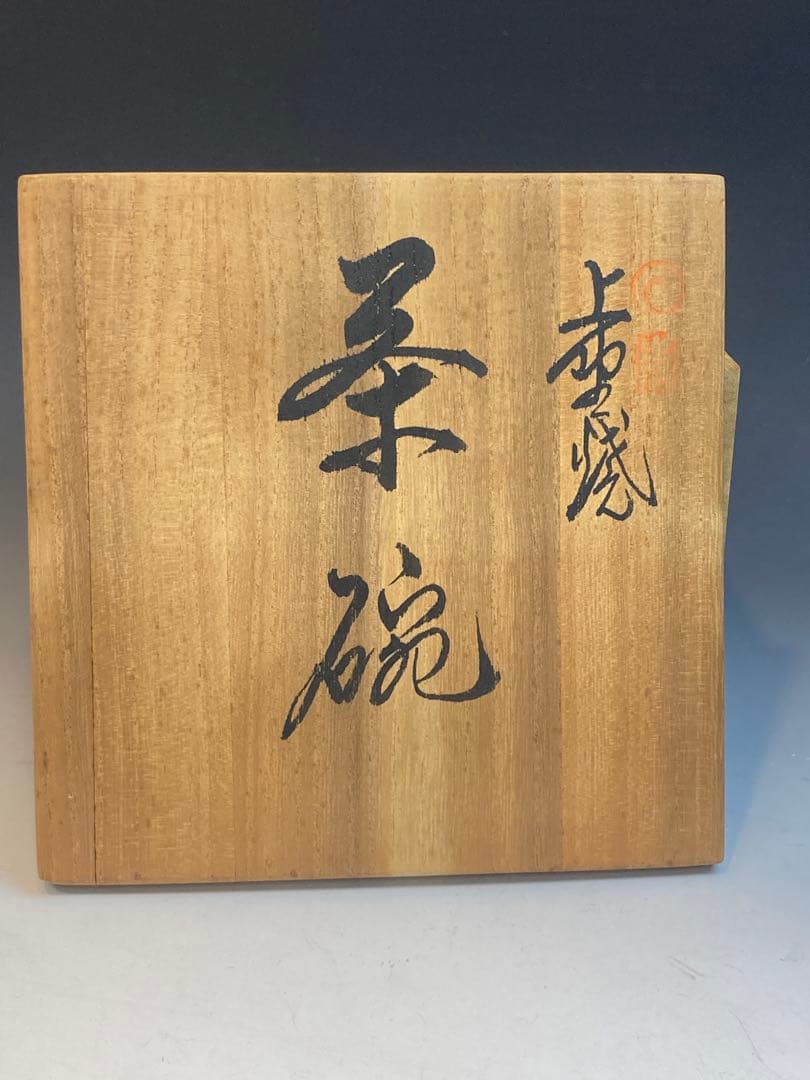 上野焼
茶碗